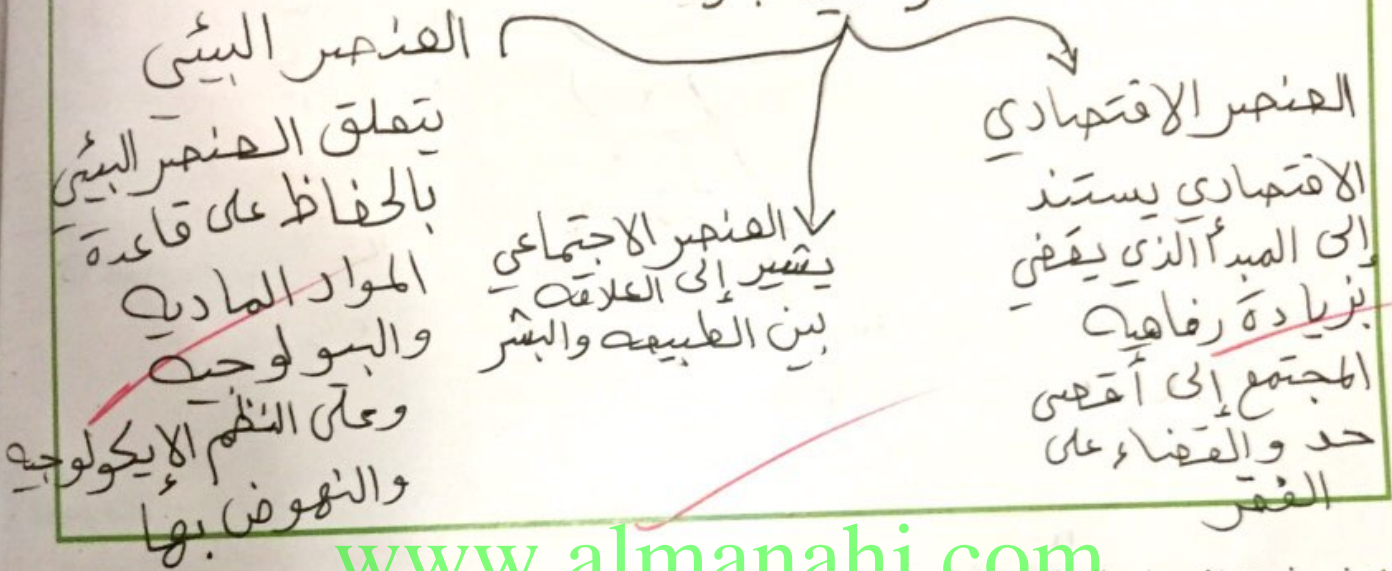 العنصر الاقتصادي
الاقتصادي يستند
إلى المبدأ الذي يقضي
بزيادة رفاهيه
المجتمع إلى أقصى
حد والقضاء على
الفقر
العنصر الاجتماعي
يشير إلى العلاقه
بين الطبيعه والبشر
العنصر البيئي
يتعلق العنصر البيئي
بالحفاظ على قاعدة
المواد الماديه
والبيولوجيه
وعلى النظم الإيكولوجيه
والنهوض بها
www.almanahj.com